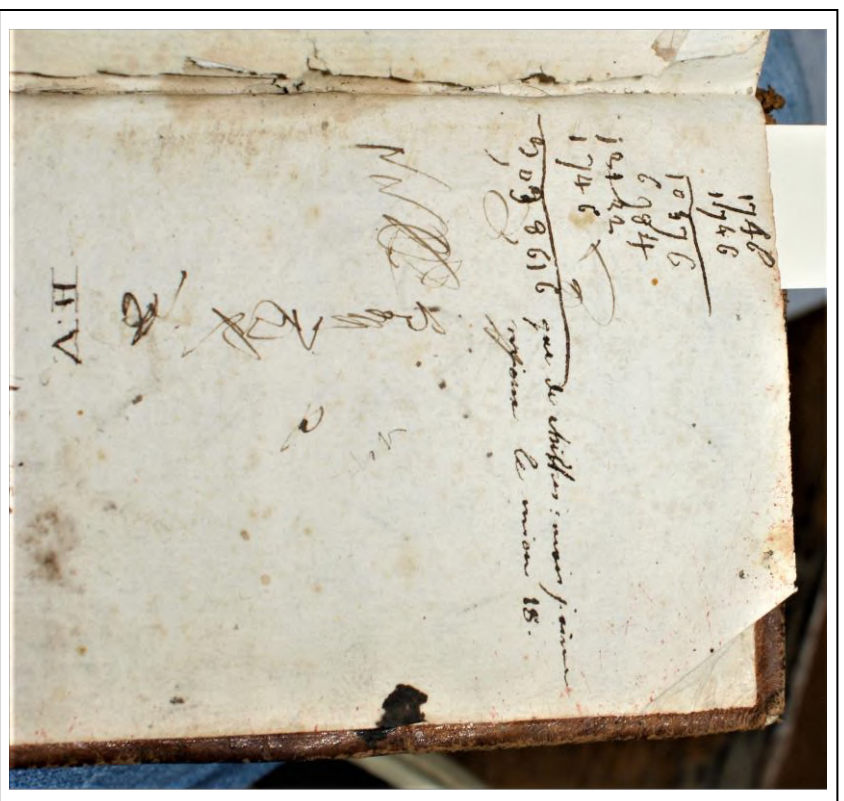 1746
1746
10476
6984
12222
1746
que de chiffres : mais j'aime
le 18.
H.V